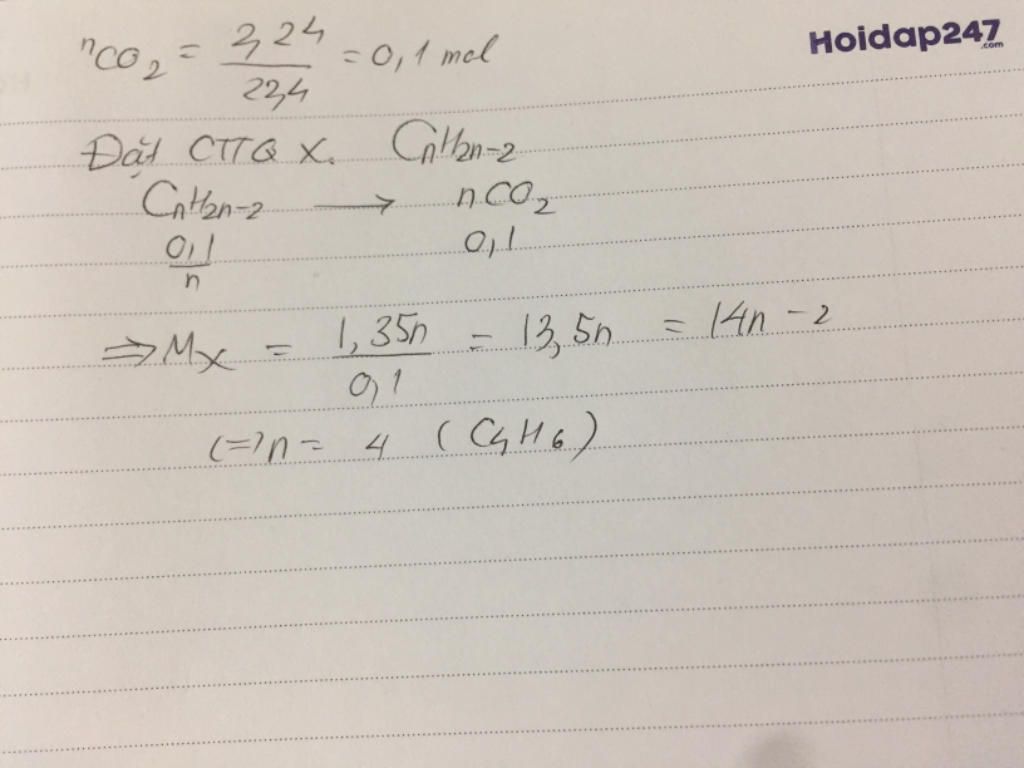 Hoidap247
.com
nCO2 = 2,24/22,4 = 0,1 mol
Đặt CTTQ X. CnH2n-2
CnH2n-2 → nCO2
0,1/n 0,1
⇒ MX = 1,35n/0,1 = 13,5n = 14n - 2
(=) n = 4 (C4H6)